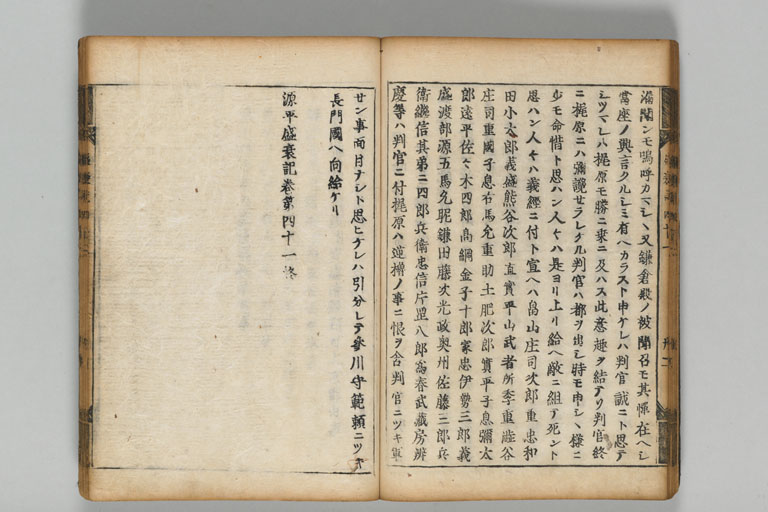 瀰聞ンモ嗚呼カマシヽ又鎌倉殿ノ被聞召モ其憚在ヘシ
當座ノ興言タルシミ有ヘカラスト申ケレハ判官誠ニト思テ
シツマレハ梶原モ勝ニ乗ニ及ハス此意趣ヲ結テソ判官終
ニ梶原ニハ讒セラレケル判官ハ都ヲ出シ時モ申シヽ様ニ
少モ命惜ト思ハン人々ハ是ヨリ上リ給ヘ敵ニ組テ死ント
思ハン人々ハ義經ニ付ト宣ヘハ畠山庄司次郎重忠和
田小太郎義盛熊谷次郎直實平山武者所季重澁谷
庄司重國子息右馬允重助土肥次郎實平子息彌太
郎遠平佐々木四郎高綱金子十郎家忠伊勢三郎義
盛渡部源五馬允眤鎌田藤次光政奥州佐藤三郎兵
衛繼信其弟ニ四郎兵衛忠信片岡八郎為春武藏房辨
慶等ハ判官ニ付梶原ハ逆櫓ノ事ニ恨ヲ含判官ニツキ軍
サン事面目ナシト思ヒケレハ引分レテ參川守範頼ニツキ
長門國ヘ向給ケリ
源平盛衰記卷第四十一終